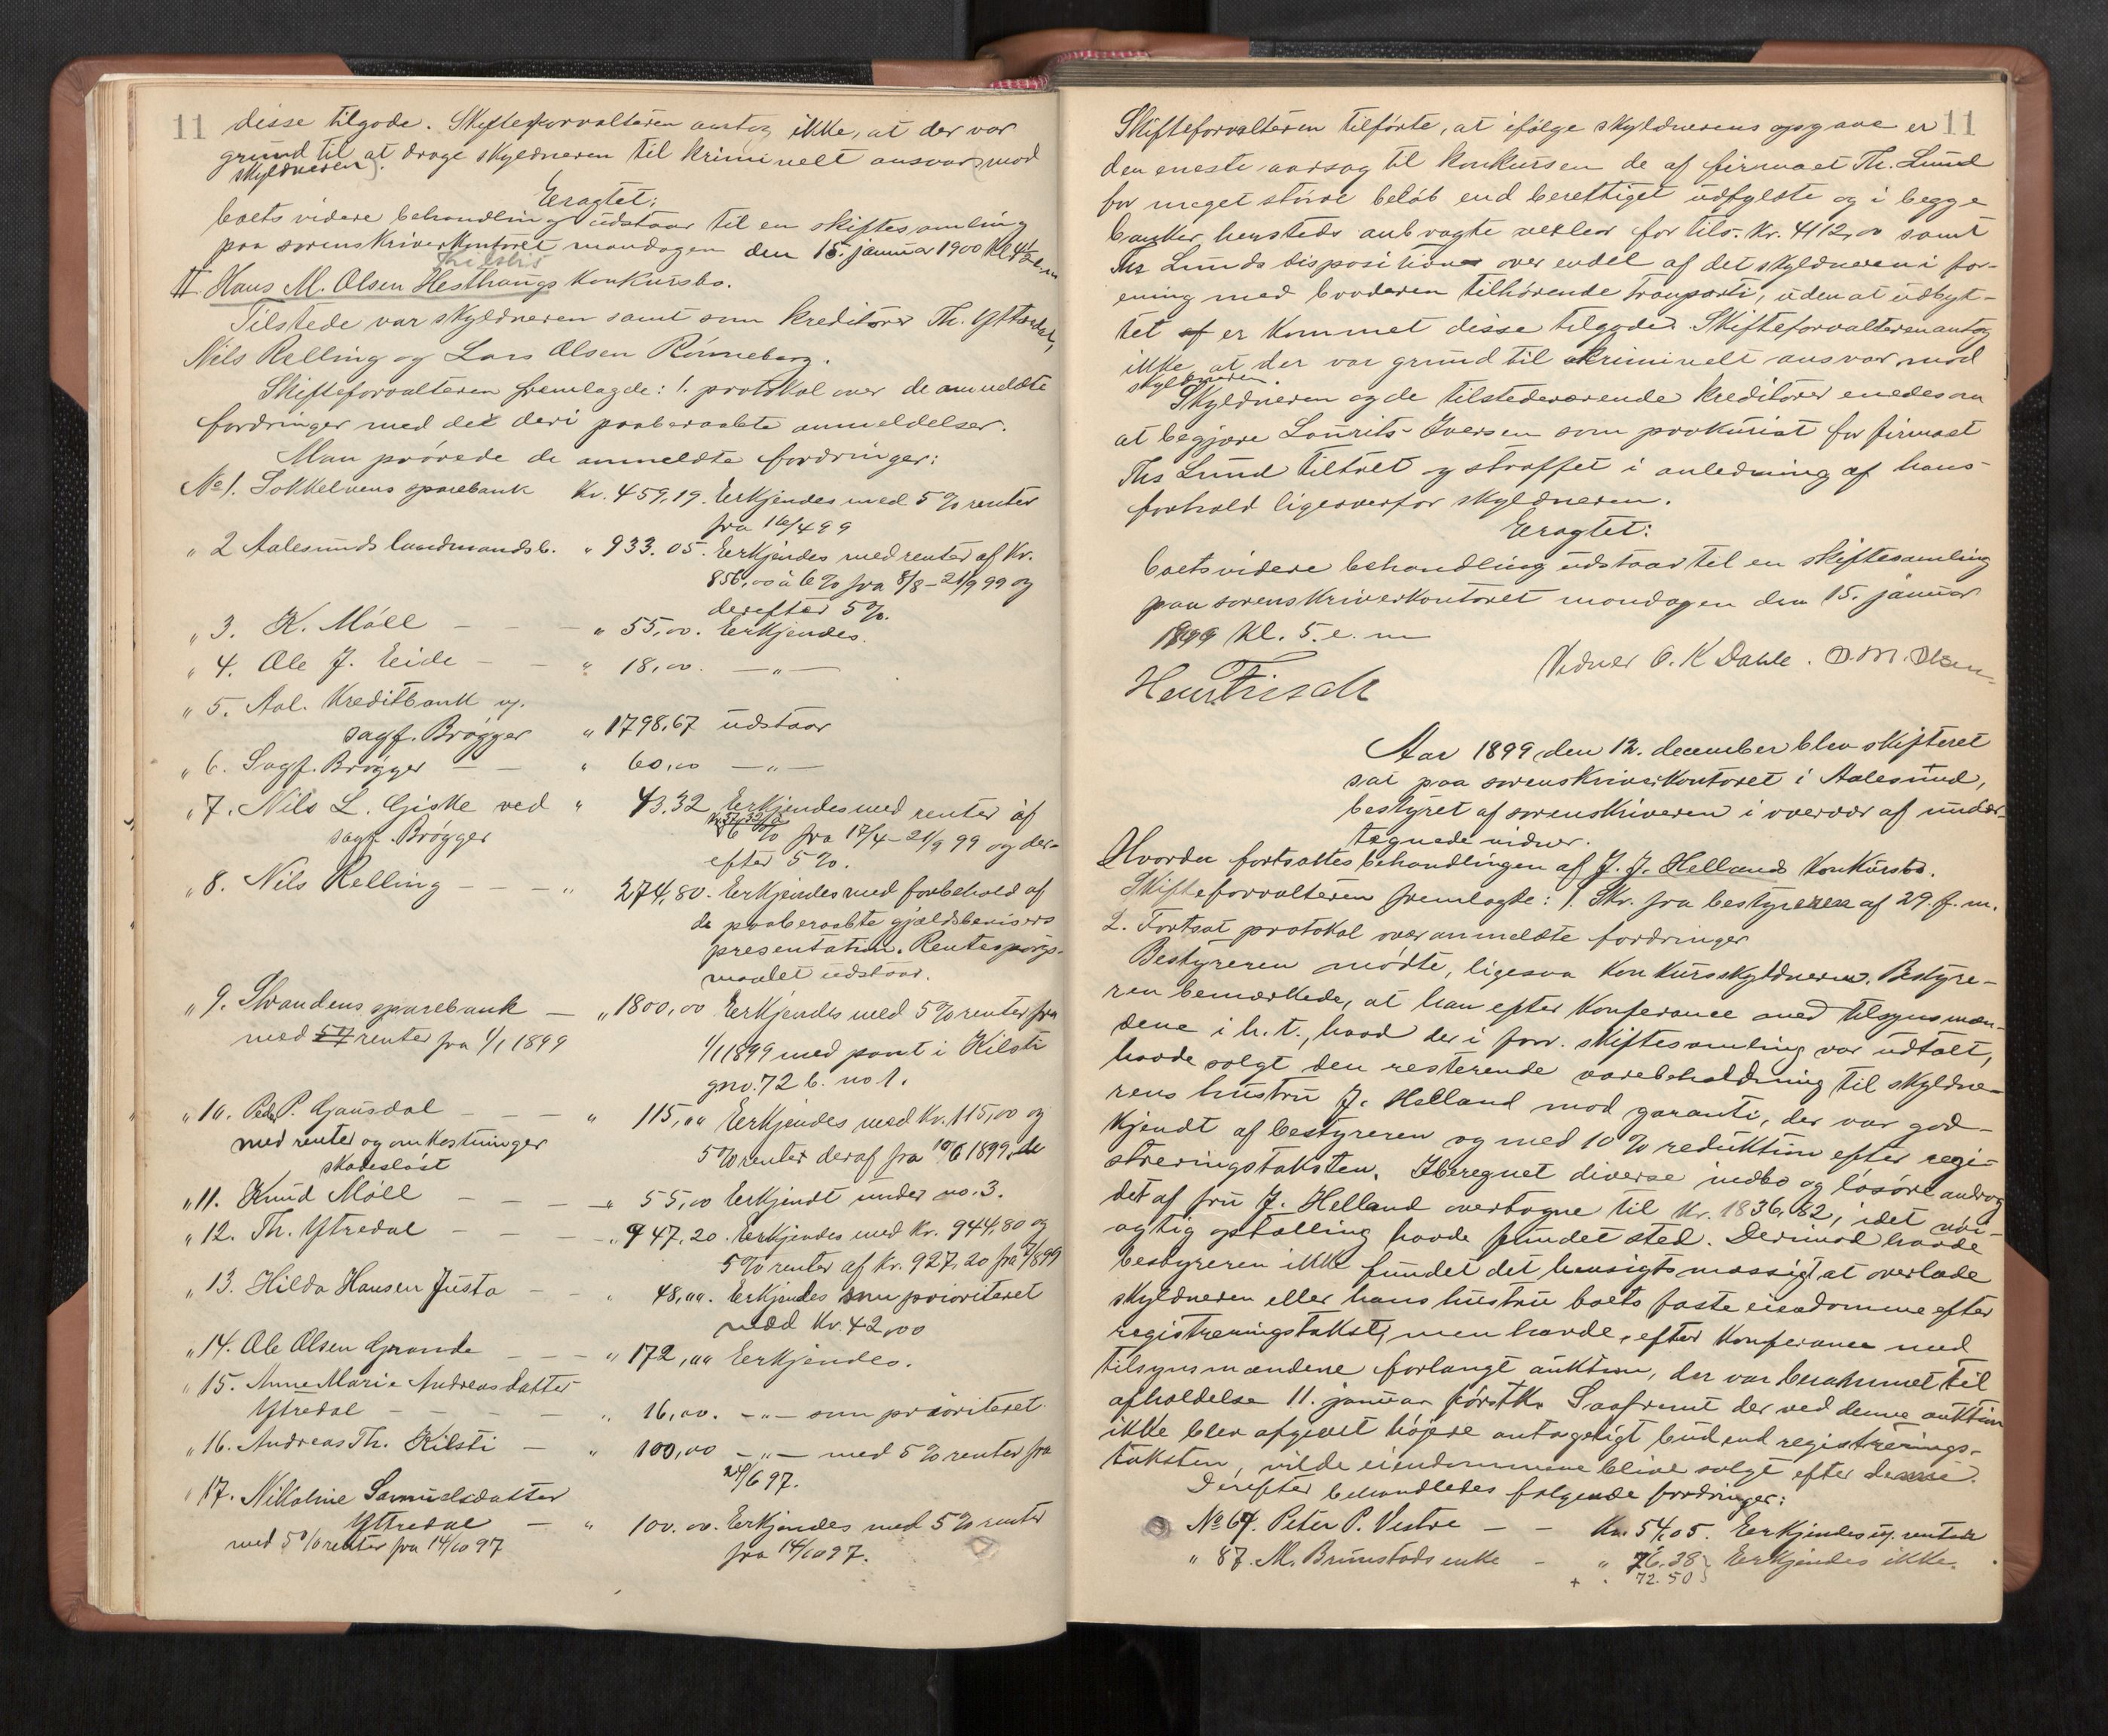 11
disse tilgode. Skifteforvalteren antog ikke, at der var
grund til at drage skyldneren til kriminelt ansvar mod
skyldneren).
Eragtet:
boets videre behandling udstaar til en skiftesamling
paa sorenskriverkontoret mandagen den 15. januar 1900 kl. 4½ e.m
Kilstis
II. Hans M. Olsen Hesthaugs konkursbo.
Tilstede var skyldneren samt som kreditorer Th. Yttredal,
Nils Relling og Lars Olsen Rønneberg.
Skifteforvalteren fremlagde: 1. protokol over de anmeldte
fordringer med det deri paaberaabte anmeldelser.
Man prøvede de anmeldte fordringer:
No 1. Søkkelvens sparebank Kr. 459,19. Erkjendes med 5% renter
fra 16/4 99
" 2 Aalesunds landmandsb. " 933.05. Erkjendes med renter af Kr.
856,00 à 6% fra 8/8 - 21/9 99 og
derefter 5%.
" 3. K. Moll - - " 55,00. Erkjendes.
" 4. Ole J. Eide - - " 18,00. - " -
" 5. Aal. Kreditbank v.
sagf. Brøgger " 1798,67 udstaar
" 6. Sagf. Brøgger - - " 60,00 - " -
" 7. Nils L. Giske ved " 43.32 Erkjendes med renter af
sagf. Brøgger 6% fra 17/4 - 21/9 99 og der-
efter 5%.
" 8. Nils Relling - - - " 274,80. Erkjendes med forbehold af
de paaberaabte gjældsbevisers
presentation. Rentespørgs-
maalet udstaar.
" 9. Strandens sparebank - " 1800,00 Erkjendes med 5% renter fra
med 5% renter fra 1/1 1899 1/1 1899 med pant i Kilsti
gno. 72 b. no 1.
" 10. Peder P. Gausdal - - - " 115,00 Erkjendes med Kr. 115,00 og
med renter og omkostninger 5% renter deraf fra 10/6 1899.
skadesløst
" 11. Knud Moll - - - " 55,00 Erkjendt under no. 3.
" 12. Th. Ytredal - - - " 947.20. Erkjendes med Kr. 944,80 og
5% renter af Kr. 927,20 fra 7/8 99
" 13. Hilda Hansen Justa - - " 48,00. Erkjendes som prioriteret
med Kr. 42,00
" 14. Ole Olsen Grande - - - " 172,00 Erkjendes.
" 15. Anne Marie Andreasdatter
Ytredal - - - - " 16,00. - " - som prioriteret.
" 16. Andreas Th. Kilsti - " 100,00 - " - med 5% renter fra
24/6 97.
" 17. Nikoline Samuelsdatter
Yttredal - " 100.00. Erkjendes med 5% renter
med 5% renter fra 14/10 97 fra 14/10 97.
11
Skifteforvalteren tilførte, at ifølge skyldnerens opgave er
den eneste aarsag til konkursen de af firmaet Th. Lund
for meget større beløb end berettiget udfyldte og i begge
banker hersteds anbragte vexler for tils. Kr. 4112,00 samt
Ths Lunds disposition over endel af det skyldneren i for-
ening med broderen tilhørende tranparti, uden at udbyt-
tet er kommet disse tilgode. Skifteforvalteren antog
ikke, at der var grund til kriminelt ansvar mod
skyldneren.
Skyldneren og de tilstedeværende kreditorer enedes om
at begjære Laurits Iversen som prokurist for firmaet
Ths Lund tiltalt og straffet i anledning af hans
forhold ligeoverfor skyldneren.
Eragtet:
boets videre behandling udstaar til en skiftesamling
paa sorenskriverkontoret mandagen den 15. januar
1899 kl. 5. e. m
Vidner O. K Dahle. O. M. Olsen
Henr. Frisch
Aar 1899 den 12. december blev skifteret
sat paa sorenskriverkontoret i Aalesund,
bestyret af sorenskriveren i overvær af under-
tegnede vidner.
Hvorda fortsattes behandlingen af J. J. Hellands konkursbo.
Skifteforvalteren fremlagte: 1. Skr. fra bestyreren af 29. f. m.
2. Fortsat protokol over anmeldte fordringer
Bestyreren mødte, ligesaa konkursskyldneren. Bestyre-
ren bemærkede, at han efter konferance med tilsynsmæn-
dene i h. t., hvad der i forr. skiftesamling var udtalt,
havde solgt den resterende varebeholdning til skyldne-
rens hustru J. Helland mod garanti, der var god-
kjendt af bestyreren og med 10% reduktion efter regi-
streringstaksten. Iberegnet diverse indbo og løsøre androg
det af fru J. Helland overtagne til Kr. 1836,82, idet nøi-
agtig optælling havde fundet sted. Derimod havde
bestyreren ikke fundet det hensigtsmæssigt at overlade
skyldneren eller hans hustru boets faste eiendomme efter
registreringstakst, men havde, efter konferance med
tilsynsmændene forlangt auktion, der var berammet til
afholdelse 11. januar førstk. Saafremt der ved denne auktion
ikke blev afgivet højere antageligt bud end registrerings-
taksten, vilde eiendommene blive solgt efter denne.
Derefter behandledes følgende fordringer:
No 64. Peter P. Vestre - - Kr. 54.05. Erkjendes og. renter
" 87. M. Brunstads enke - " 76.38 } Erkjendes ikke.
+ " 72.50